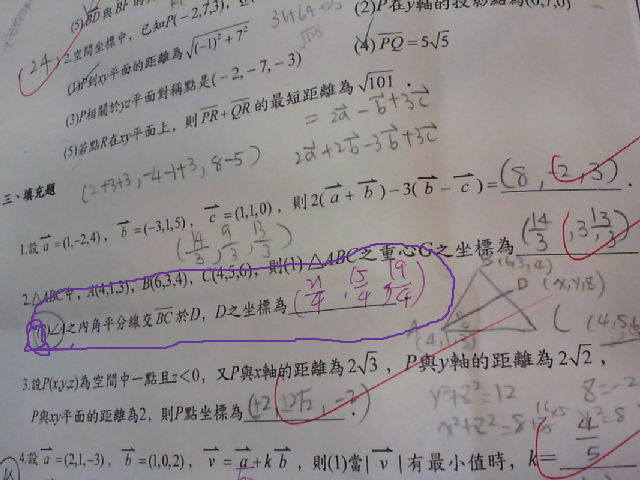 (2)P在y軸的投影點為(0,7,0)
2.空間坐標中,已知P(-2,7,3),
(1)P到xy平面的距離為√((-1)²+7²)
(4) PQ=5√5
(3)P相關於yz平面對稱點是(-2,-7,-3)
(5)若點R在xy平面上,則PR+QR的最短距離為√101.
= 2a-b+3c
2a+2b-3b+3c
(2+3+3, -4-1+3, 8-5)
三、填充題
1.設a=(1,-2,4), b=(-3,1,5), c=(1,1,0), 則2(a+b)-3(b-c)=(8, -2, 3).
(14/3, 9/3, 13/3)
2.△ABC中, A(4,1,3), B(6,3,4), C(4,5,6), 則(1)△ABC之重心G之坐標為(14/3, 3, 13/3)
∠A之內角平分線交BC於D, D之坐標為(21/4, 15/4, 19/4)
B(6,3,4)
D(x,y,z)
A(4,1,3)
3.設P(x,y,z)為空間中一點且z<0, 又P與x軸的距離為2√3, P與y軸的距離為2√2,
P與xy平面的距離為2, 則P點坐標為(±2, ±2√2, -2)
y²+z²=12
z=-2
x²+z²=8
y²=8
4.設a=(2,1,-3), b=(1,0,2), v=a+kb, 則(1)當|v|有最小值時, k=4/5